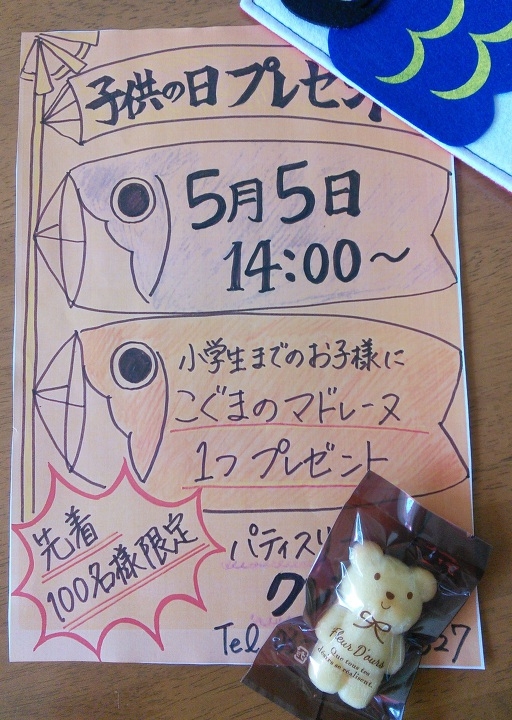 子供の日プレゼント
5月5日
14:00～
小学生までのお子様に
こぐまのマドレーヌ
1つ プレゼント
先着
100名様限定
パティスリ
ク
Tel
327
Fleur D'ours
Que tous tes
désirs se réalisent.